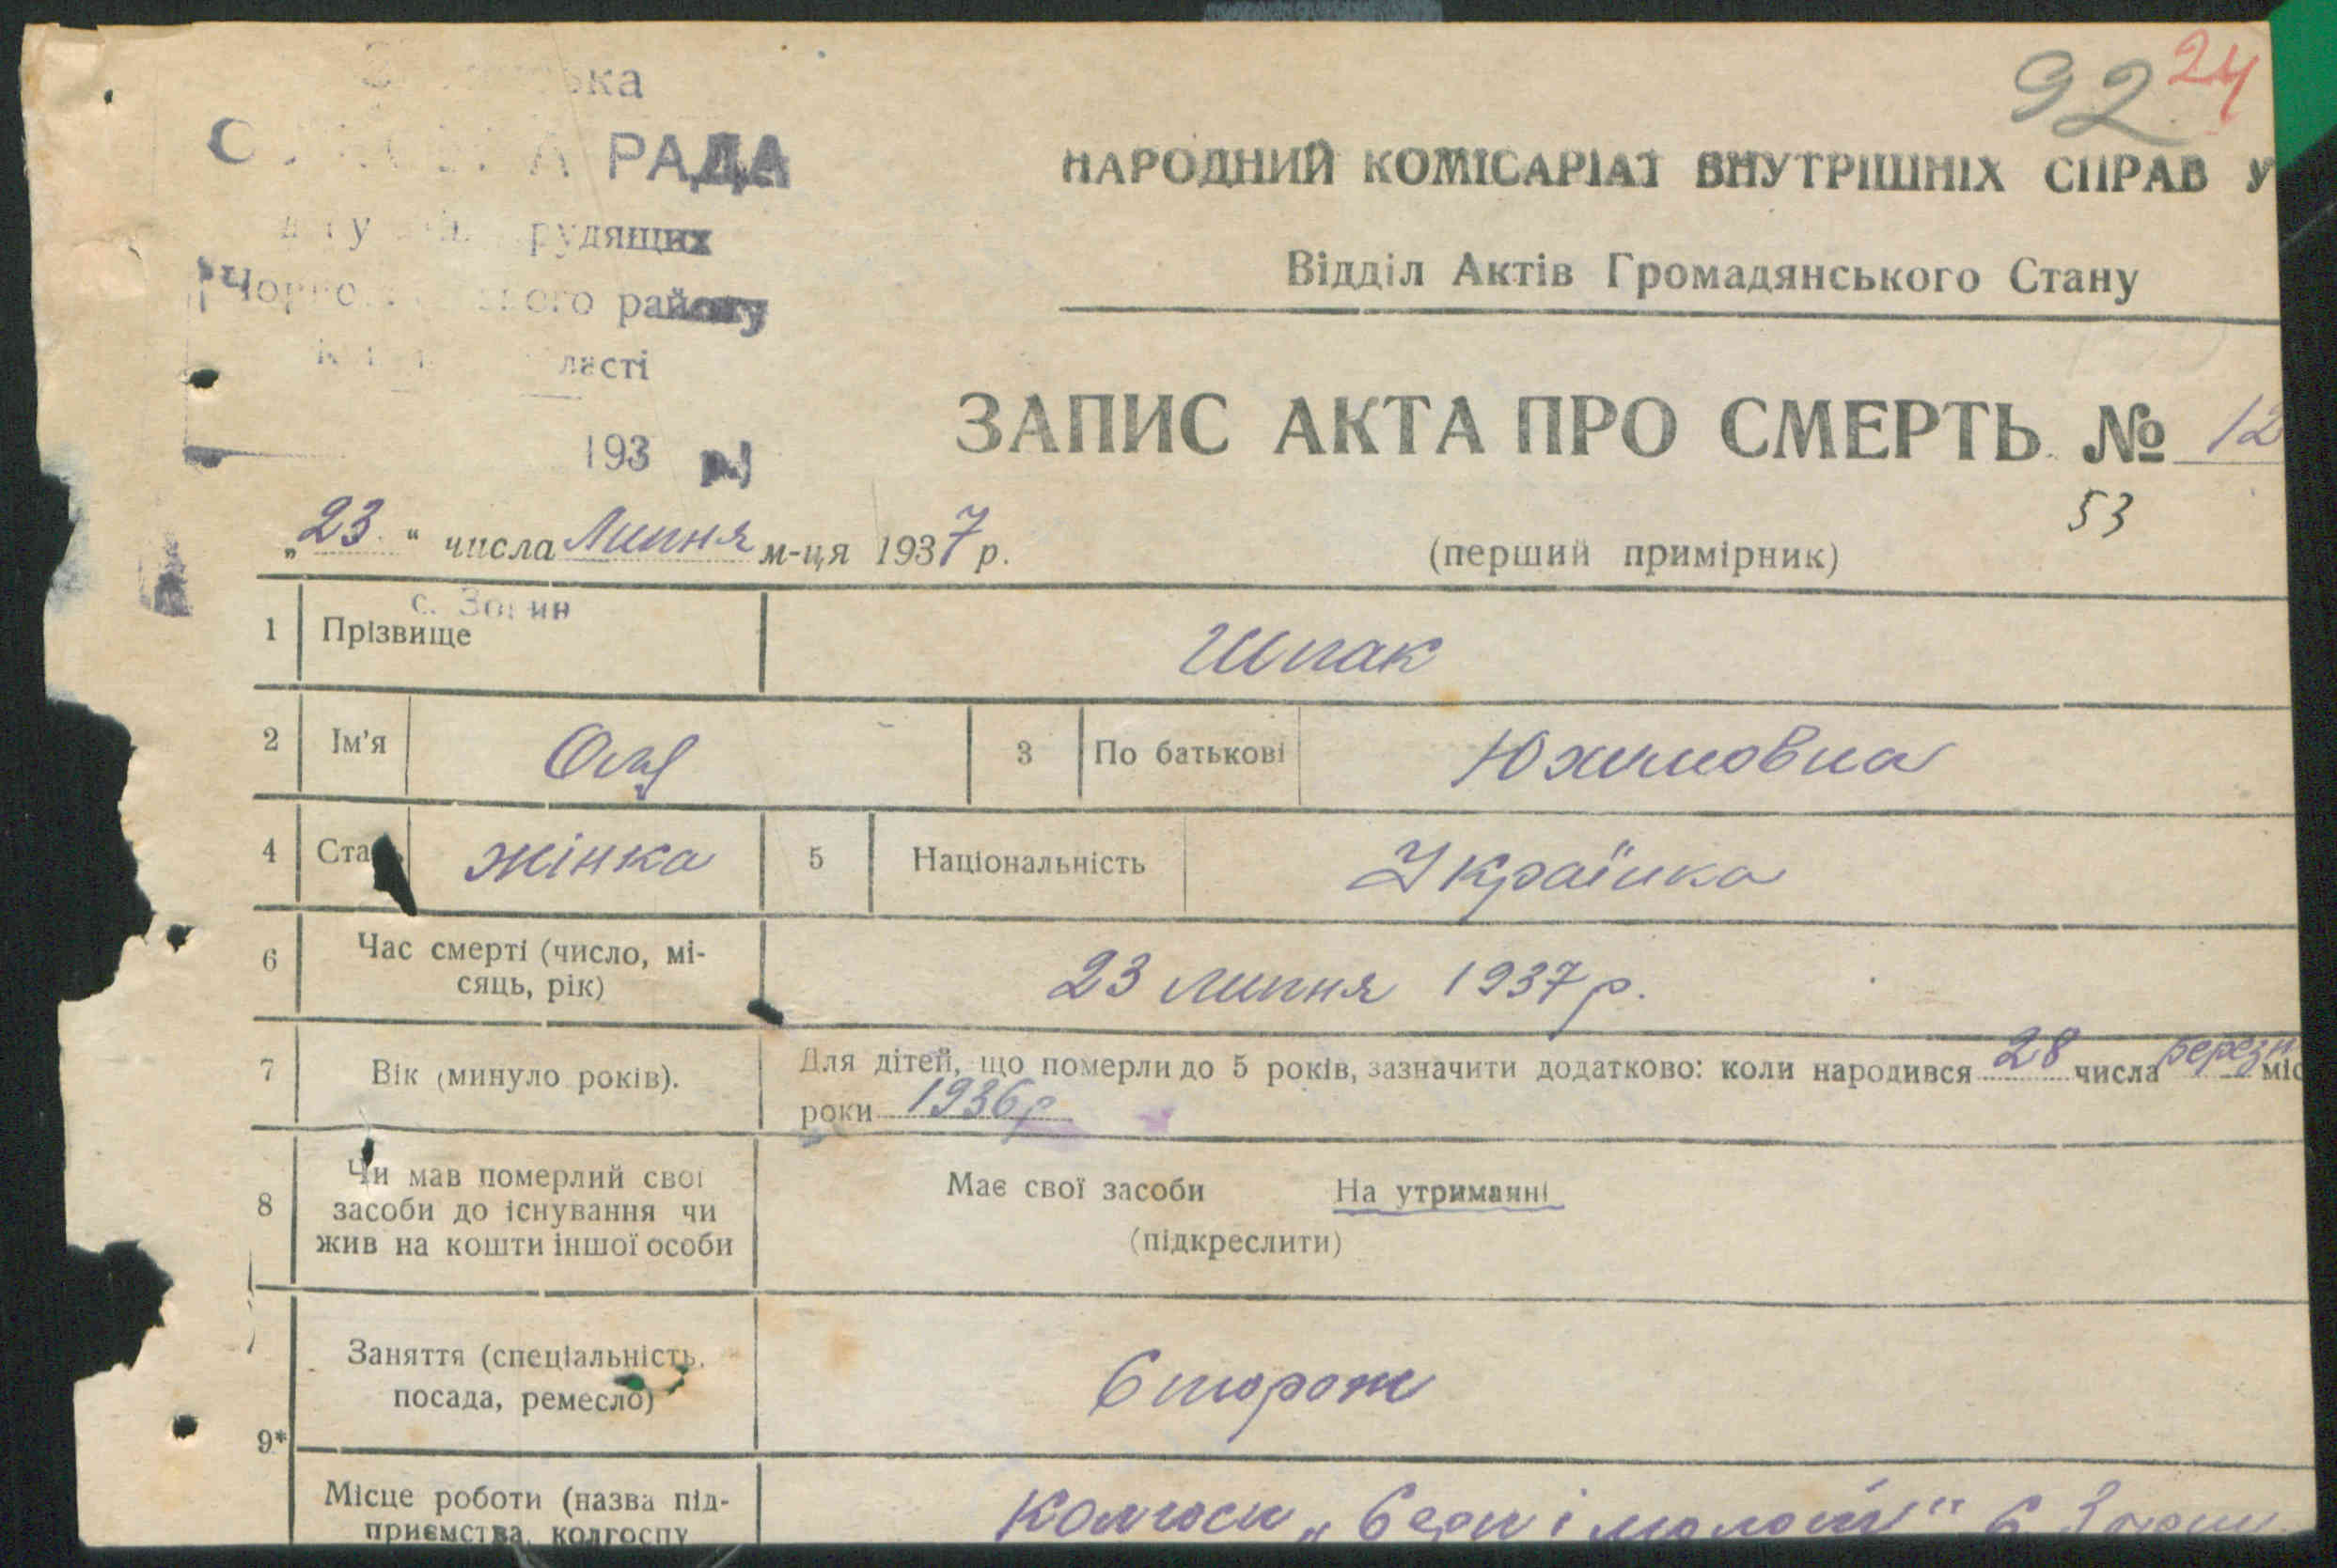 92 24
РАДА
трудящих
району
193
НАРОДНИЙ КОМІСАРІАТ ВНУТРІШНІХ СПРАВ У
Відділ Актів Громадянського Стану
ЗАПИС АКТА ПРО СМЕРТЬ № 12
53
„23“ числа Липня м-ця 1937 р.
(перший примірник)
1 Прізвище Шпак
2 Ім'я 3 По батькові Юхимовна
4 Стать жінка 5 Національність Українка
6 Час смерті (число, мі-
сяць, рік)
23 липня 1937 р.
7 Вік (минуло років).
Для дітей, що померли до 5 років, зазначити додатково: коли народився 28 числа березн міс
роки 1936 р
8 Чи мав померлий свої
засоби до існування чи
жив на кошти іншої особи
Має свої засоби На утриманні
(підкреслити)
9*
Заняття (спеціальність,
посада, ремесло)
Сторож
Місце роботи (назва під-
приємства, колгоспу
Колгосп „Серп і молот" с